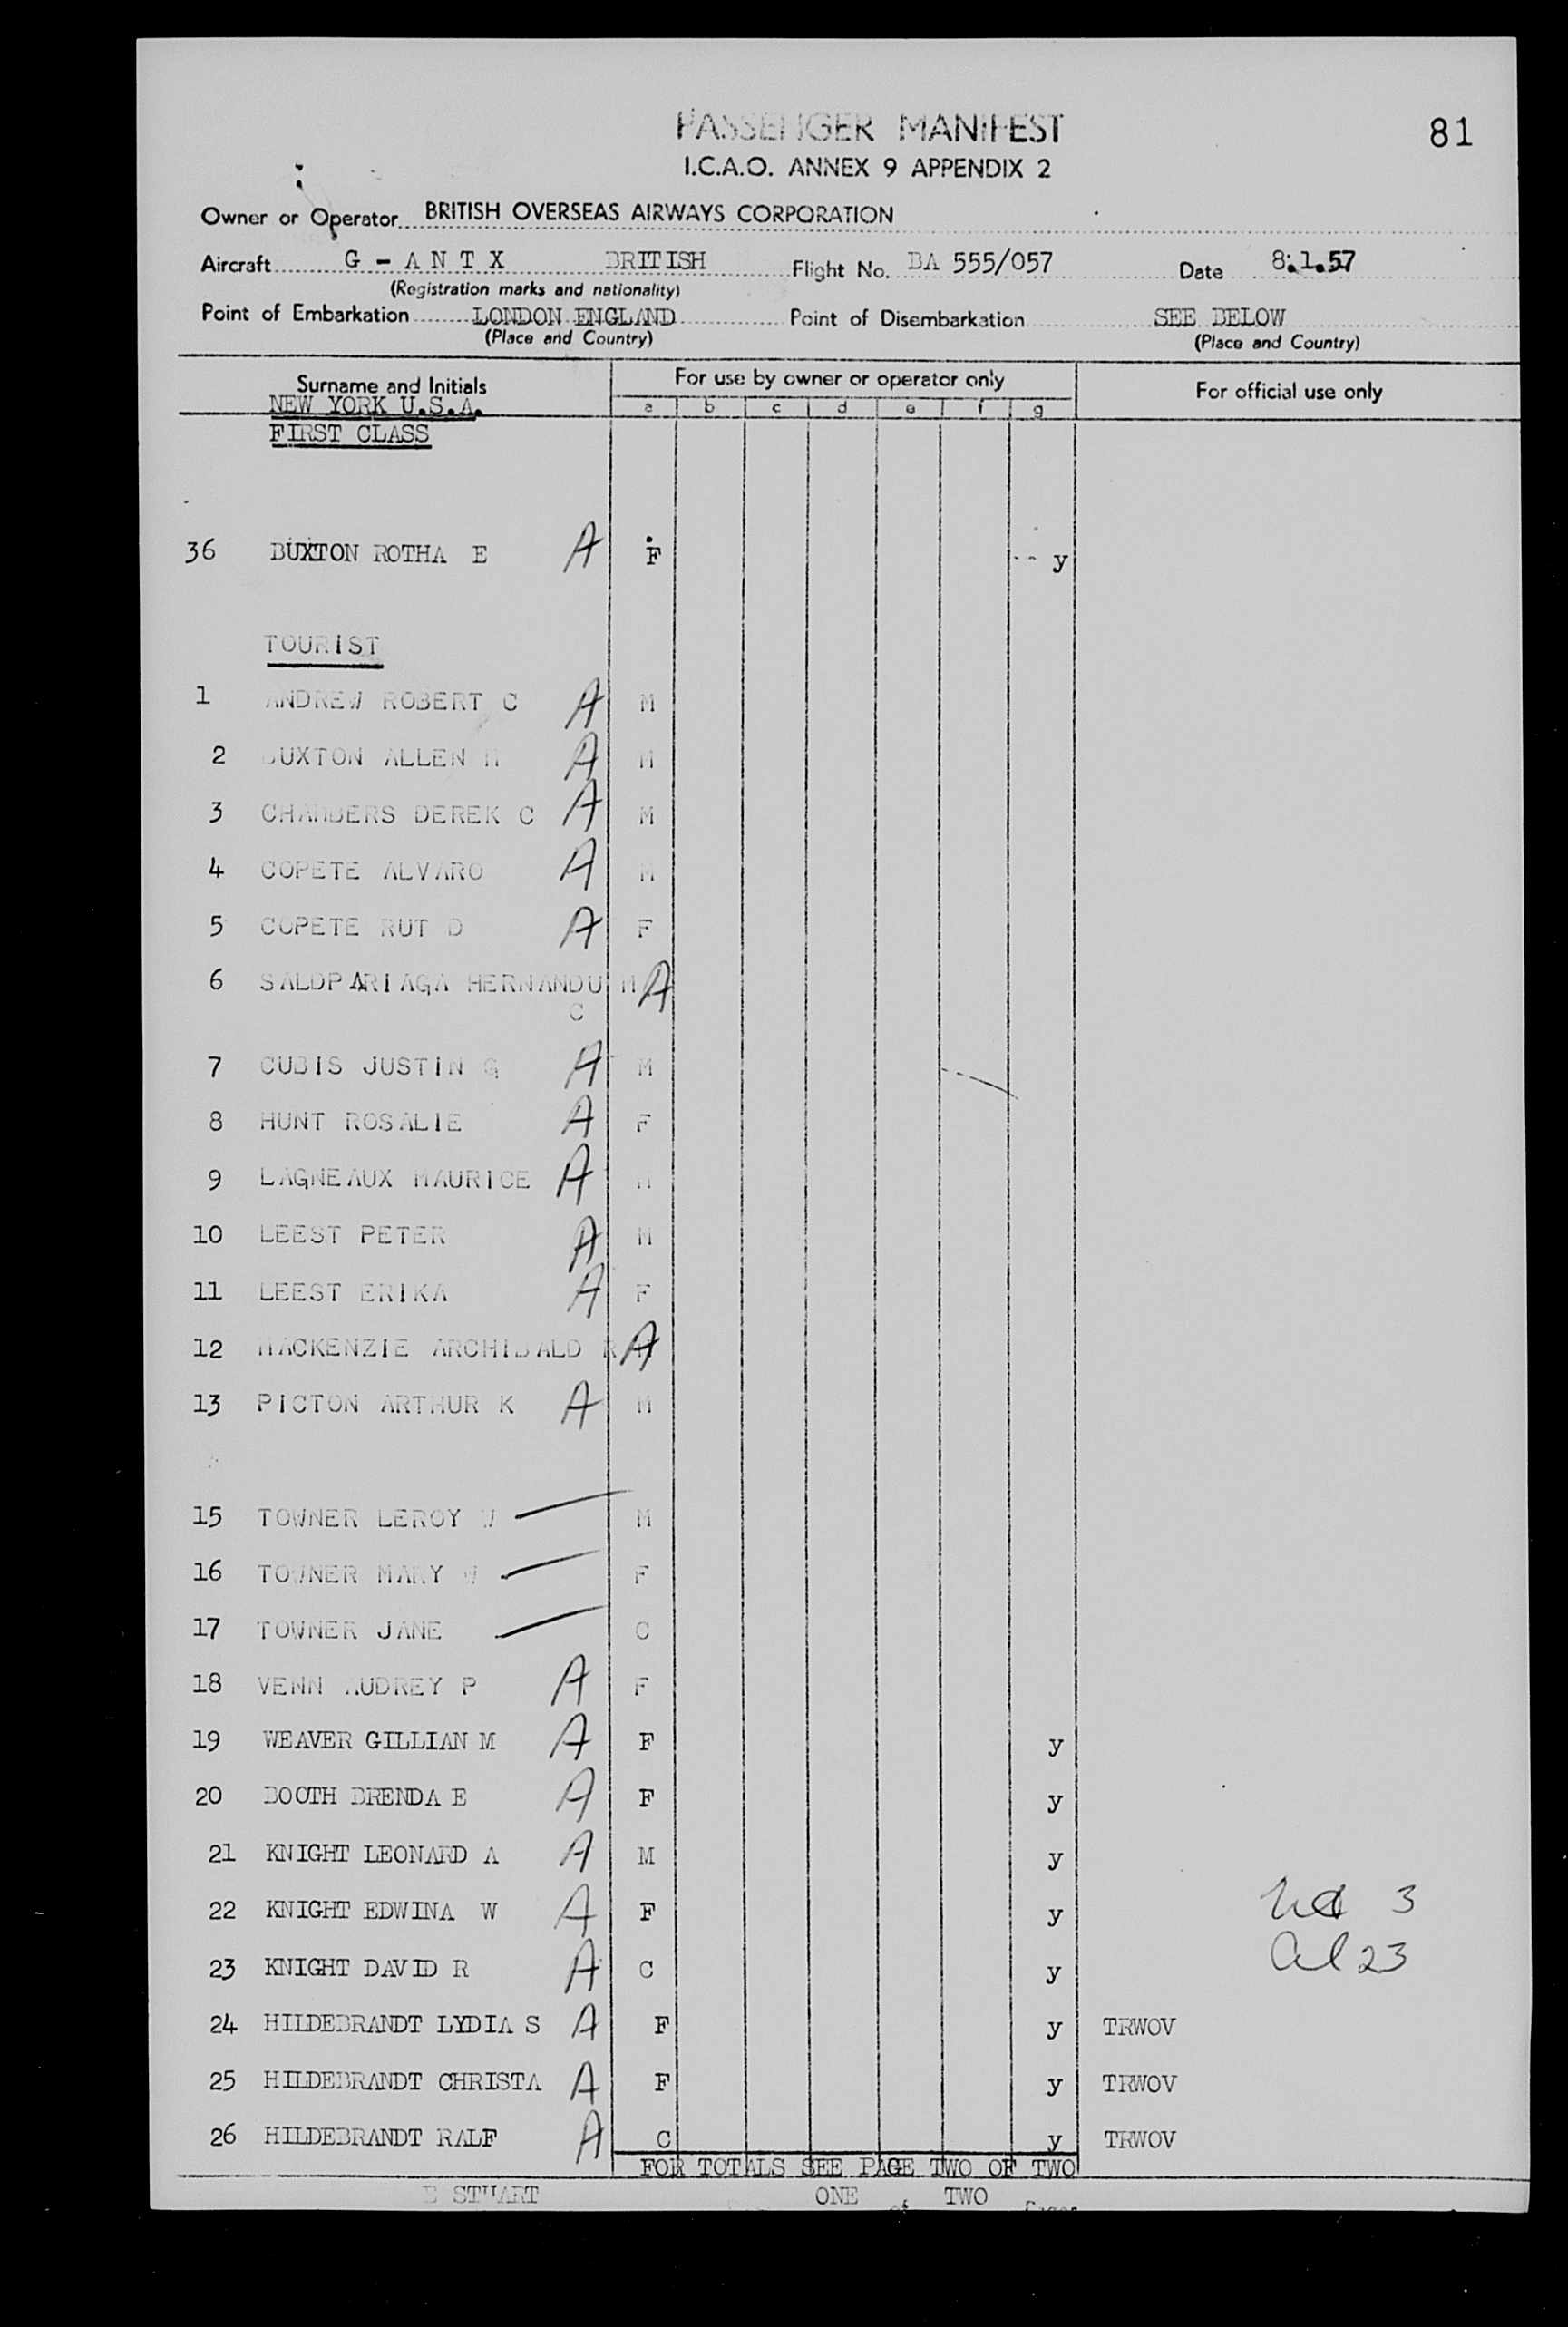 PASSENGER MANIFEST
81
I.C.A.O. ANNEX 9 APPENDIX 2
Owner or Operator BRITISH OVERSEAS AIRWAYS CORPORATION
Aircraft G - A N T X BRITISH Flight No. BA 555/057 Date 8.1.57
(Registration marks and nationality)
Point of Embarkation LONDON ENGLAND Point of Disembarkation SEE BELOW
(Place and Country) (Place and Country)
Surname and Initials For use by owner or operator only For official use only
NEW YORK U.S.A. a b c d e f g
FIRST CLASS
36 BUXTON ROTHA E A F y
TOURIST
1 ANDREW ROBERT C A M
2 BUXTON ALLEN M A M
3 CHAMBERS DEREK C A M
4 COPETE ALVARO A M
5 COPETE RUT D A F
6 SALDPARIAGA HERNANDO M A
C
7 CUBIS JUSTIN G A M
8 HUNT ROSALIE A F
9 LAGNEAUX MAURICE A M
10 LEEST PETER A M
11 LEEST ERIKA A F
12 MACKENZIE ARCHIBALD R A
13 PICTON ARTHUR K A M
15 TOWNER LEROY W M
16 TOWNER MARY W F
17 TOWNER JANE C
18 VENN AUDREY P A F
19 WEAVER GILLIAN M A F y
20 BOOTH BRENDA E A F y
21 KNIGHT LEONARD A A M y
22 KNIGHT EDWINA W A F y
3
23 KNIGHT DAVID R A C y
al 23
24 HILDEBRANDT LYDIA S A F y TRWOV
25 HILDEBRANDT CHRISTA A F y TRWOV
26 HILDEBRANDT RALF A C y TRWOV
FOR TOTALS SEE PAGE TWO OF TWO
E STUART ONE of TWO Pages